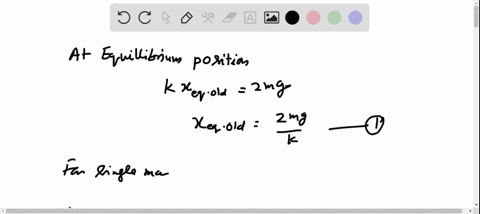 At Equillibrium position
k x_eq.old = 2mg
x_eq.old = 2mg/k —— ①
For single ma